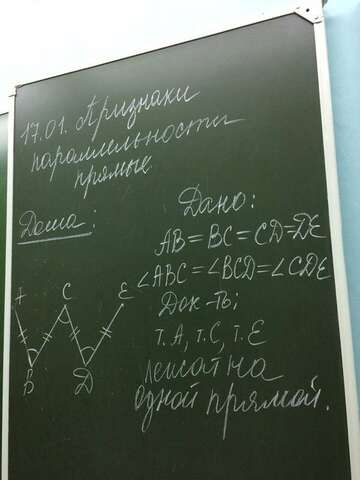 17.01. Признаки
параллельности
прямые
Дома:
Дано:
AB = BC = CD = DE
∠ABC = ∠BCD = ∠CDE
Док-ть:
т. A, т. C, т. E
лежат на
одной прямой.
A C E
B D